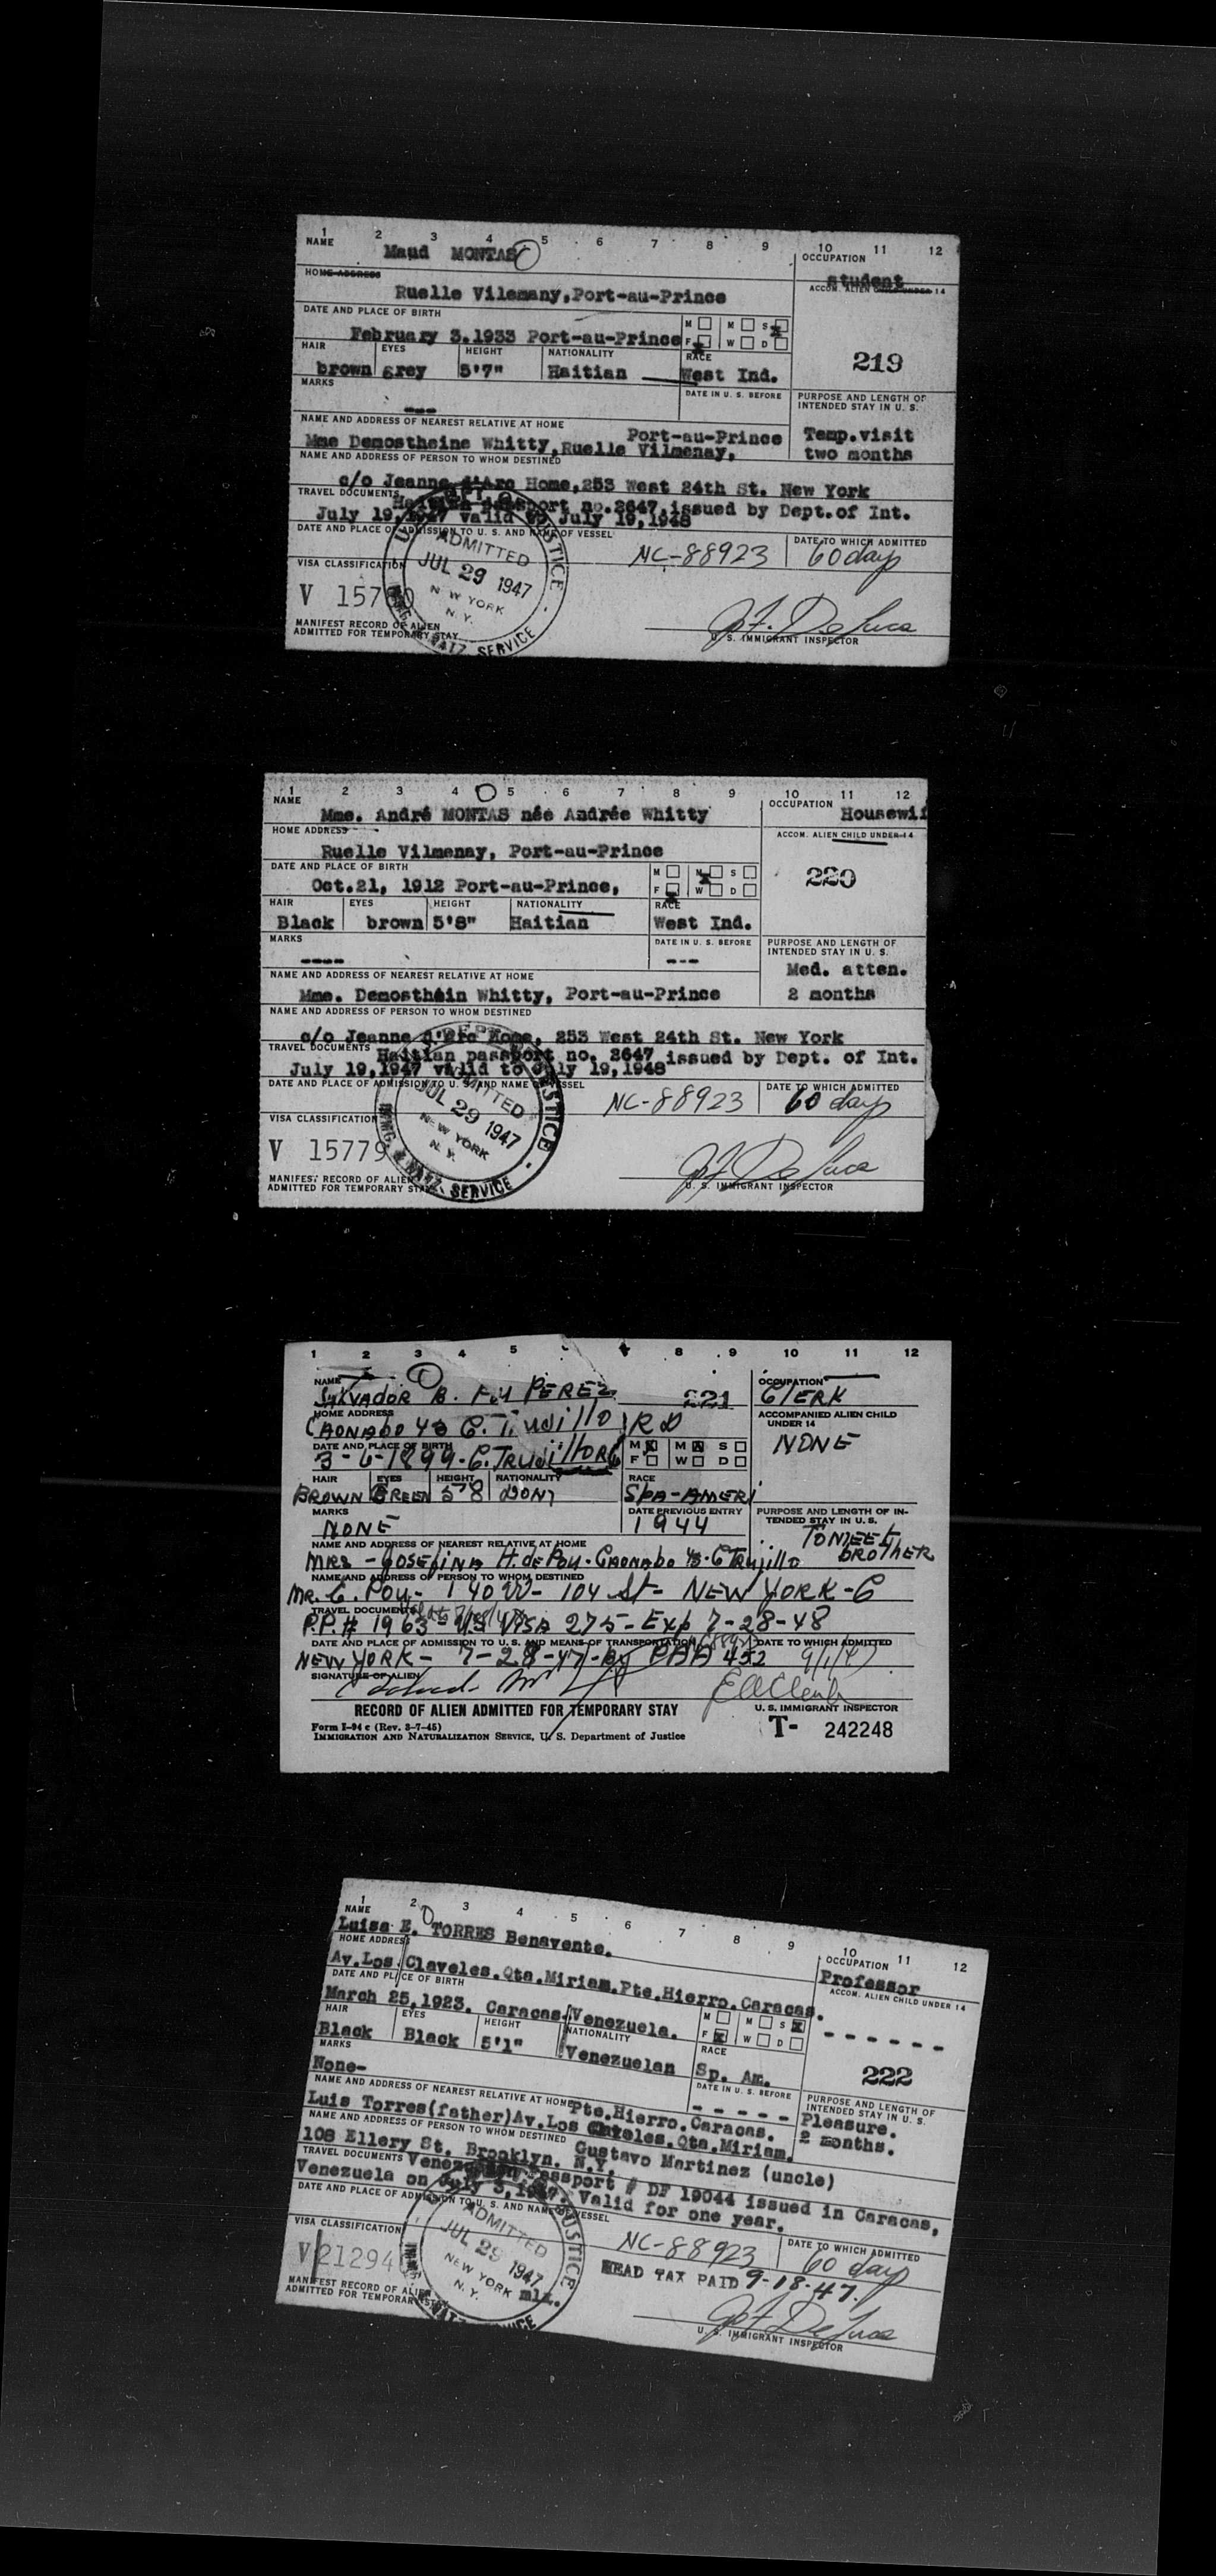 1 2 3 4 5 6 7 8 9 10 11 12
NAME Maud MONTAS OCCUPATION
student
HOME ADDRESS ACCOM. ALIEN CHILD UNDER 14
Ruelle Vilemany,Port-au-Prince
DATE AND PLACE OF BIRTH M M S
February 3.1933 Port-au-Prince F W D 219
HAIR EYES HEIGHT NATIONALITY RACE
brown grey 5'7" Haitian West Ind.
MARKS DATE IN U. S. BEFORE PURPOSE AND LENGTH OF
INTENDED STAY IN U. S.
---
NAME AND ADDRESS OF NEAREST RELATIVE AT HOME Port-au-Prince Temp.visit
Mme Demostheine Whitty,Ruelle Vilmenay, two months
NAME AND ADDRESS OF PERSON TO WHOM DESTINED
c/o Jeanne d'Arc Home,253 West 24th St. New York
TRAVEL DOCUMENTS Haitian passport no.2647,issued by Dept.of Int.
July 19,1947 valid to July 19,1948
DATE AND PLACE OF ADMISSION TO U. S. AND NAME OF VESSEL DATE TO WHICH ADMITTED
NC-88923 60 days
ADMITTED
JUL 29 1947
NEW YORK
N. Y.
VISA CLASSIFICATION
V 15780
MANIFEST RECORD OF ALIEN
ADMITTED FOR TEMPORARY STAY
U. S. IMMIGRANT INSPECTOR
1 2 3 4 5 6 7 8 9 10 11 12
NAME OCCUPATION Housewif
Mme. André MONTAS née Andrée Whitty
HOME ADDRESS ACCOM. ALIEN CHILD UNDER 14
Ruelle Vilmenay, Port-au-Prince
DATE AND PLACE OF BIRTH M M S 220
Oct.21, 1912 Port-au-Prince, F W D
HAIR EYES HEIGHT NATIONALITY RACE
Black brown 5'8" Haitian West Ind.
MARKS DATE IN U. S. BEFORE PURPOSE AND LENGTH OF
INTENDED STAY IN U. S.
---- --- Med. atten.
NAME AND ADDRESS OF NEAREST RELATIVE AT HOME
Mme. Demosthèin Whitty, Port-au-Prince 2 months
NAME AND ADDRESS OF PERSON TO WHOM DESTINED
c/o Jeanne d'Arc Home, 253 West 24th St. New York
TRAVEL DOCUMENTS Haitian passport no. 2647 issued by Dept. of Int.
July 19,1947 valid to July 19,1948
DATE AND PLACE OF ADMISSION TO U. S. AND NAME OF VESSEL DATE TO WHICH ADMITTED
NC-88923 60 days
ADMITTED
JUL 29 1947
NEW YORK
N. Y.
VISA CLASSIFICATION
V 15779
MANIFEST RECORD OF ALIEN
ADMITTED FOR TEMPORARY STAY
U. S. IMMIGRANT INSPECTOR
1 2 3 4 5 6 7 8 9 10 11 12
NAME OCCUPATION
SALVADOR B. POU PEREZ 221 CLERK
HOME ADDRESS ACCOMPANIED ALIEN CHILD
UNDER 14
CAONABO 43 C. Trujillo RD
DATE AND PLACE OF BIRTH M M S NONE
3-6-1899-C.TRUJILLO RD F W D
HAIR EYES HEIGHT NATIONALITY RACE
BROWN GREEN 58 DOM SPA-AMERI
MARKS DATE PREVIOUS ENTRY PURPOSE AND LENGTH OF IN-
TENDED STAY IN U. S.
NONE 1944 TO MEET
BROTHER
NAME AND ADDRESS OF NEAREST RELATIVE AT HOME
MRS - JOSEFINA H. de POU - CAONABO 43 - C Trujillo
NAME AND ADDRESS OF PERSON TO WHOM DESTINED
MR. C. POU - 140 W - 104 St - NEW YORK - C
TRAVEL DOCUMENTS
P.P.# 1963 - U.S. VISA 275 - Exp 7-28-48
DATE AND PLACE OF ADMISSION TO U. S. AND MEANS OF TRANSPORTATION DATE TO WHICH ADMITTED
NEW YORK - 7-28-47 - By PAA 452 9/1/47
SIGNATURE OF ALIEN
RECORD OF ALIEN ADMITTED FOR TEMPORARY STAY U. S. IMMIGRANT INSPECTOR
Form I-94 c (Rev. 3-7-45)
IMMIGRATION AND NATURALIZATION SERVICE, U. S. Department of Justice T- 242248
1 2 3 4 5 6 7 8 9 10 11 12
NAME OCCUPATION
Luisa E. TORRES Benavente. Professor
HOME ADDRESS ACCOM. ALIEN CHILD UNDER 14
Av.Los Claveles.Qta.Miriam.Pte.Hierro.Caracas.
DATE AND PLACE OF BIRTH M M S ------
March 25,1923. Caracas.Venezuela. F W D
HAIR EYES HEIGHT NATIONALITY RACE 222
Black Black 5'1" Venezuelan Sp. Am.
MARKS DATE IN U. S. BEFORE PURPOSE AND LENGTH OF
INTENDED STAY IN U. S.
None- ----- Pleasure.
NAME AND ADDRESS OF NEAREST RELATIVE AT HOME Pte.Hierro.Caracas. 2 months.
Luis Torres(father)Av.Los Claveles.Qta.Miriam.
NAME AND ADDRESS OF PERSON TO WHOM DESTINED Gustavo Martinez (uncle)
108 Ellery St. Brooklyn. N.Y.
TRAVEL DOCUMENTS Venezuelan Passport # DF 19044 issued in Caracas,
Venezuela on July 3,1947. Valid for one year.
DATE AND PLACE OF ADMISSION TO U. S. AND NAME OF VESSEL DATE TO WHICH ADMITTED
NC-88923 60 days
HEAD TAX PAID 9-18-47.
ADMITTED
JUL 29 1947
NEW YORK
N. Y.
VISA CLASSIFICATION
V 21294
MANIFEST RECORD OF ALIEN
ADMITTED FOR TEMPORARY STAY
U. S. IMMIGRANT INSPECTOR